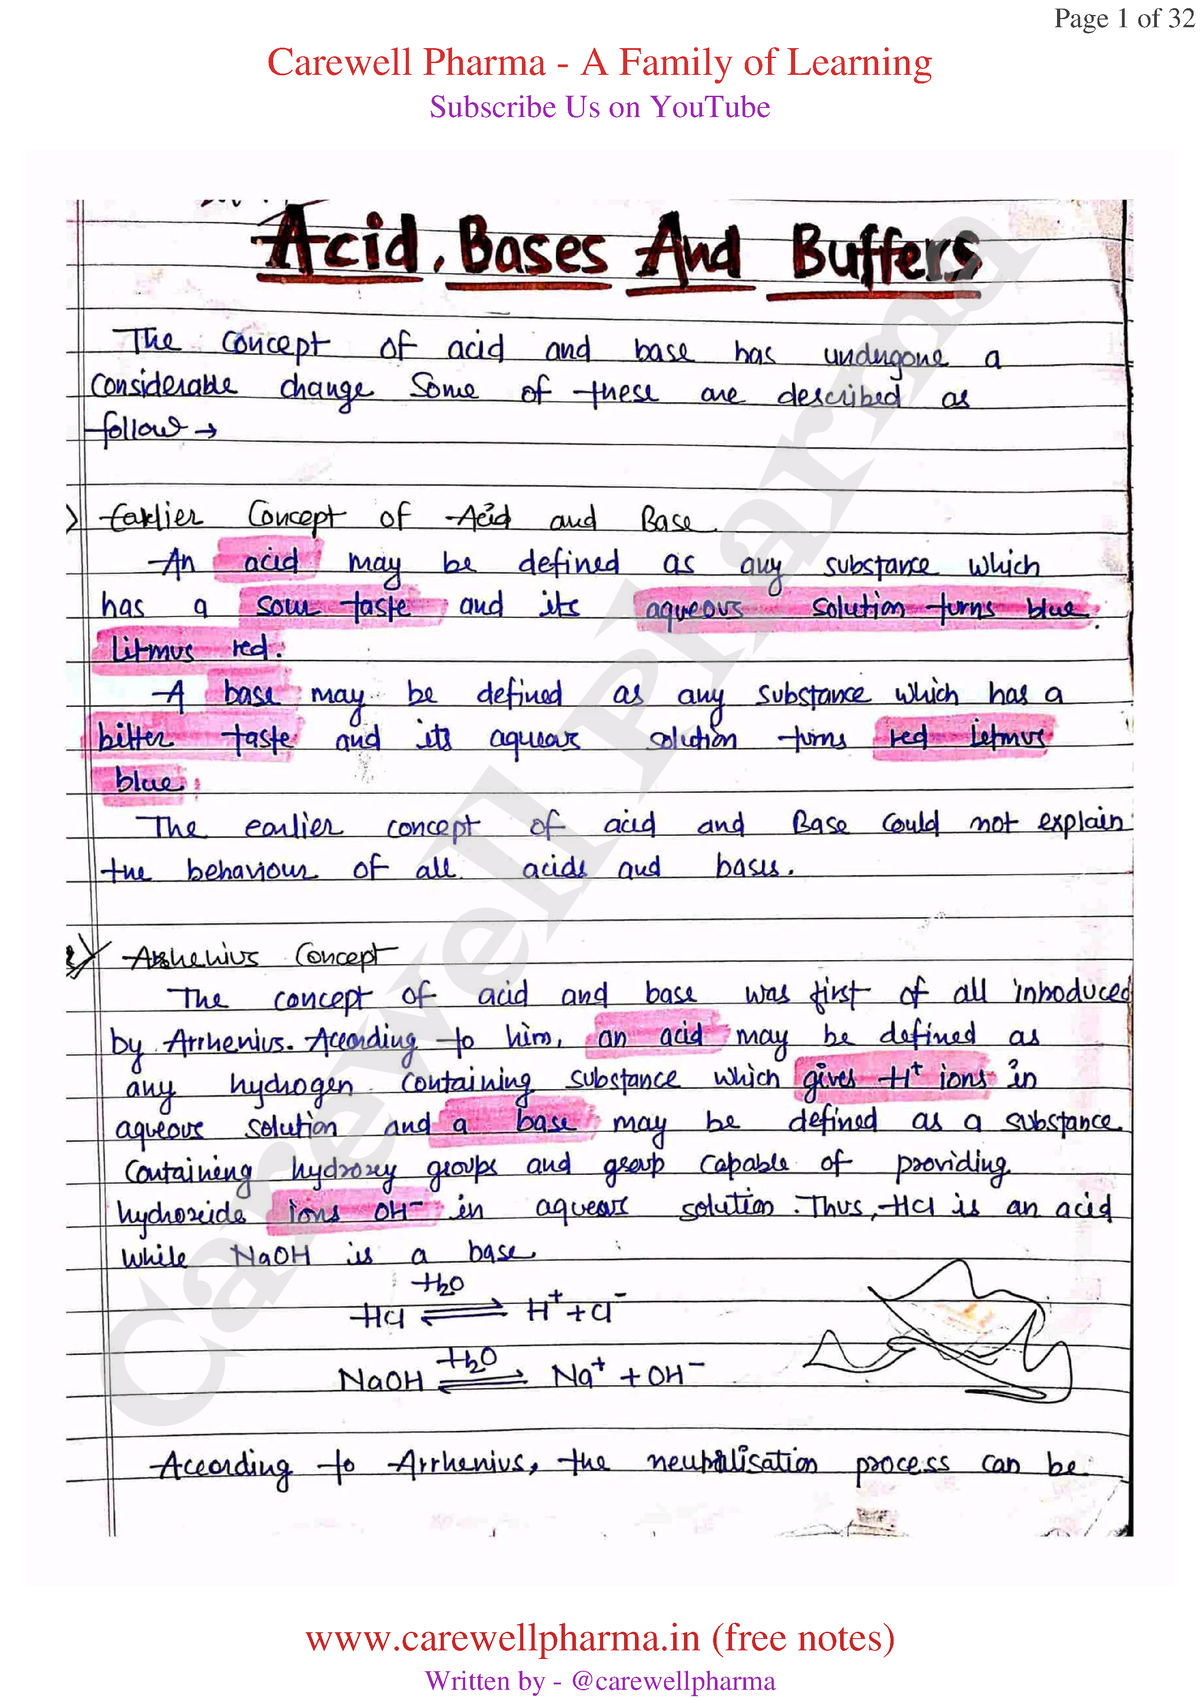 Page 1 of 32
Carewell Pharma - A Family of Learning
Subscribe Us on YouTube
Acid, Bases And Buffers
The concept of acid and base has undergone a
considerable change Some of these are described as
follow →
Earlier Concept of Acid and Base
An acid may be defined as any substance which
has a sour taste and its aqueous solution turns blue
litmus red.
A base may be defined as any substance which has a
bitter taste and its aqueous solution turns red litmus
blue.
The earlier concept of acid and Base could not explain
the behaviour of all acids and bases.
2) Arrhenius Concept
The concept of acid and base was first of all introduced
by Arrhenius. According to him, an acid may be defined as
any hydrogen containing substance which gives H⁺ ions in
aqueous solution and a base may be defined as a substance
Containing hydroxy groups and group capable of providing
hydroxide ions OH⁻ in aqueous solution. Thus, HCl is an acid
while NaOH is a base.
H₂O
HCl ⇌ H⁺ + Cl⁻
H₂O
NaOH ⇌ Na⁺ + OH⁻
According to Arrhenius, the neutralisation process can be
Carewell Pharma
www.carewellpharma.in (free notes)
Written by - @carewellpharma